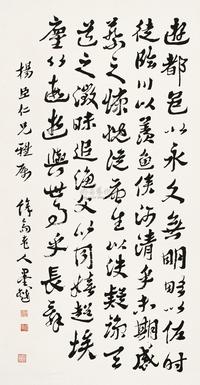 遊都邑以永久無明略以佐時
徒臨川以羨魚俟河清乎未期感
蔡子之慷慨從唐生以決疑諒天
道之微昧追漁父以同嬉超埃
塵以遐逝與世事乎長辭
仁兄雅屬
老人